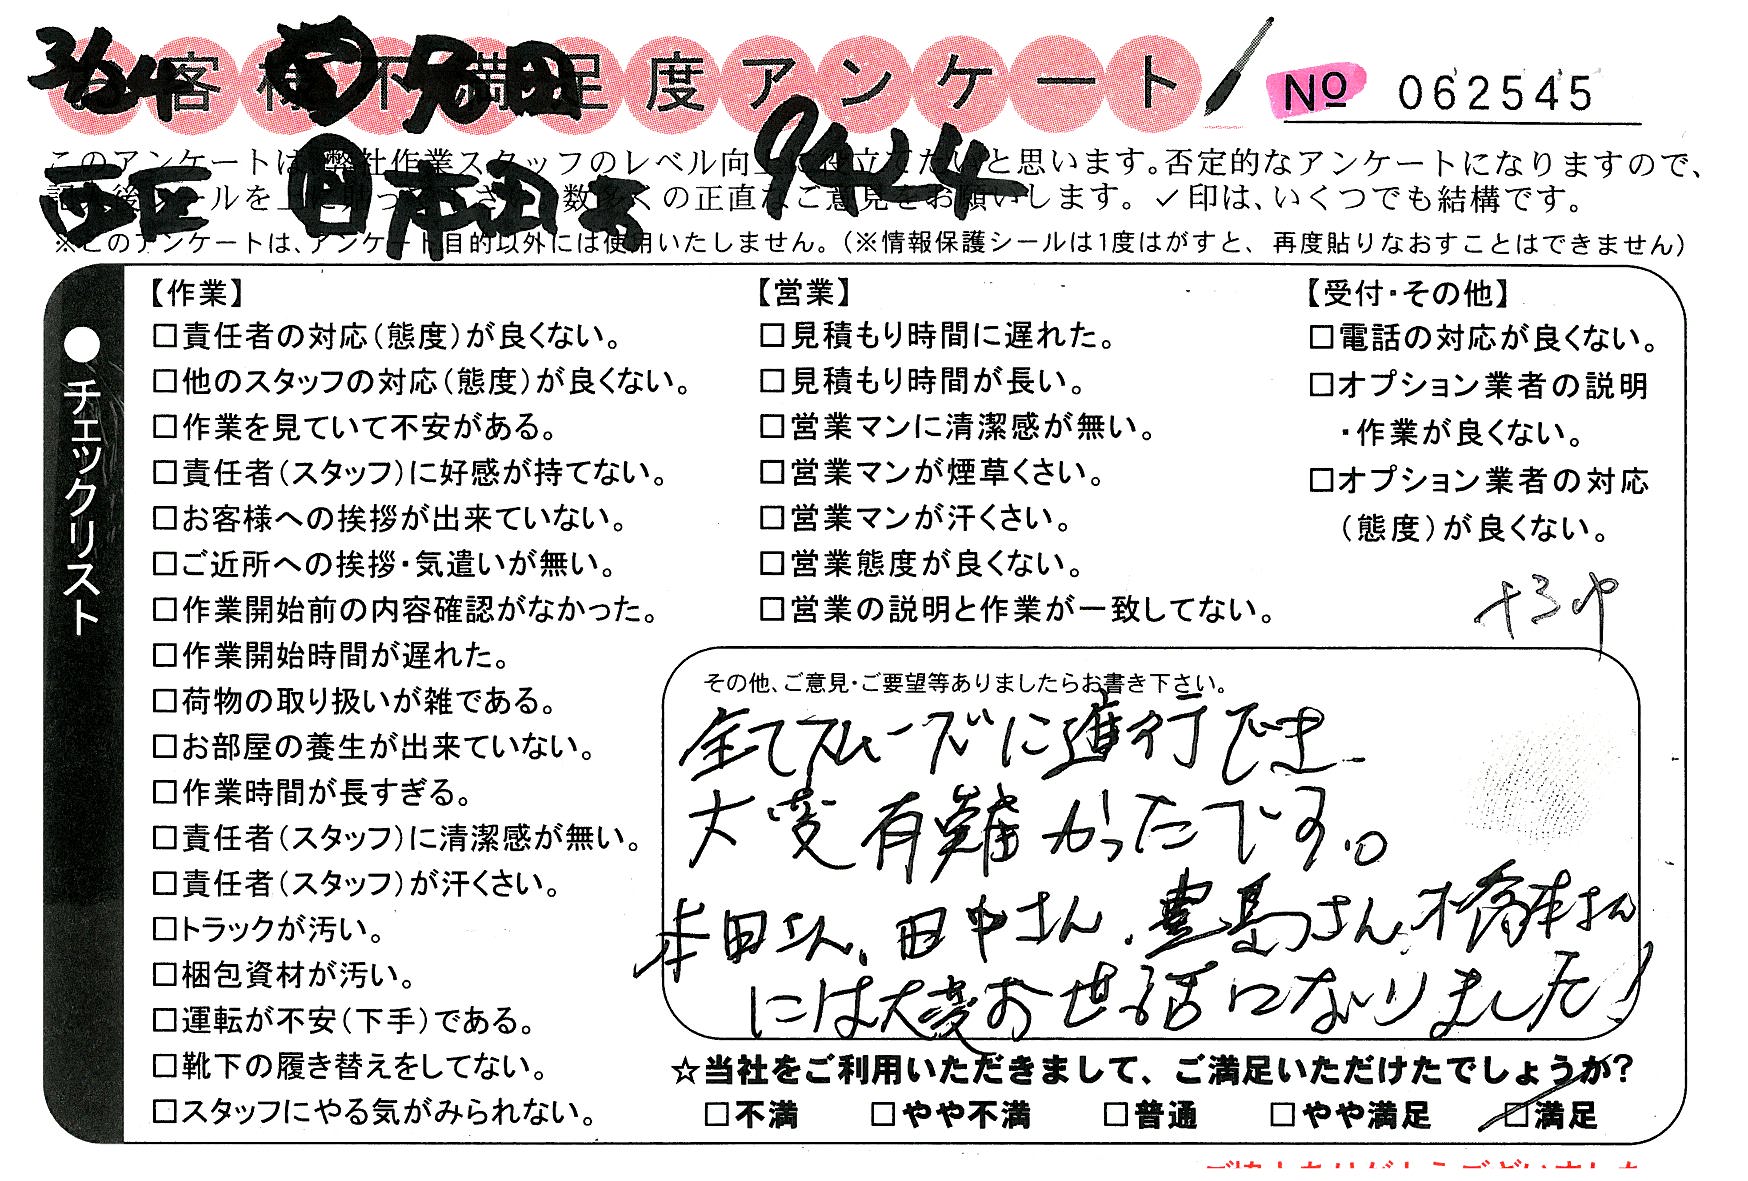 3/24
お客様不満足度アンケート
No 062545
このアンケートは、弊社作業スタッフのレベル向上に役立てたいと思います。否定的なアンケートになりますので、
数多くの正直なご意見をお願いします。✓印は、いくつでも結構です。
西区 本田
※このアンケートは、アンケート目的以外には使用いたしません。(※情報保護シールは1度はがすと、再度貼りなおすことはできません)
●チェックリスト
【作業】
□責任者の対応(態度)が良くない。
□他のスタッフの対応(態度)が良くない。
□作業を見ていて不安がある。
□責任者(スタッフ)に好感が持てない。
□お客様への挨拶が出来ていない。
□ご近所への挨拶・気遣いが無い。
□作業開始前の内容確認がなかった。
□作業開始時間が遅れた。
□荷物の取り扱いが雑である。
□お部屋の養生が出来ていない。
□作業時間が長すぎる。
□責任者(スタッフ)に清潔感が無い。
□責任者(スタッフ)が汗くさい。
□トラックが汚い。
□梱包資材が汚い。
□運転が不安(下手)である。
□靴下の履き替えをしてない。
□スタッフにやる気がみられない。
【営業】
□見積もり時間に遅れた。
□見積もり時間が長い。
□営業マンに清潔感が無い。
□営業マンが煙草くさい。
□営業マンが汗くさい。
□営業態度が良くない。
□営業の説明と作業が一致してない。
【受付・その他】
□電話の対応が良くない。
□オプション業者の説明
・作業が良くない。
□オプション業者の対応
(態度)が良くない。
その他、ご意見・ご要望等ありましたらお書き下さい。
全てスムーズに進行でき
大変有難かったです。
本田さん、田中さん、豊島さん、橋本さん
には大変お世話になりました!
☆当社をご利用いただきまして、ご満足いただけたでしょうか?
□不満 □やや不満 □普通 □やや満足 □満足
ご協力ありがとうございました